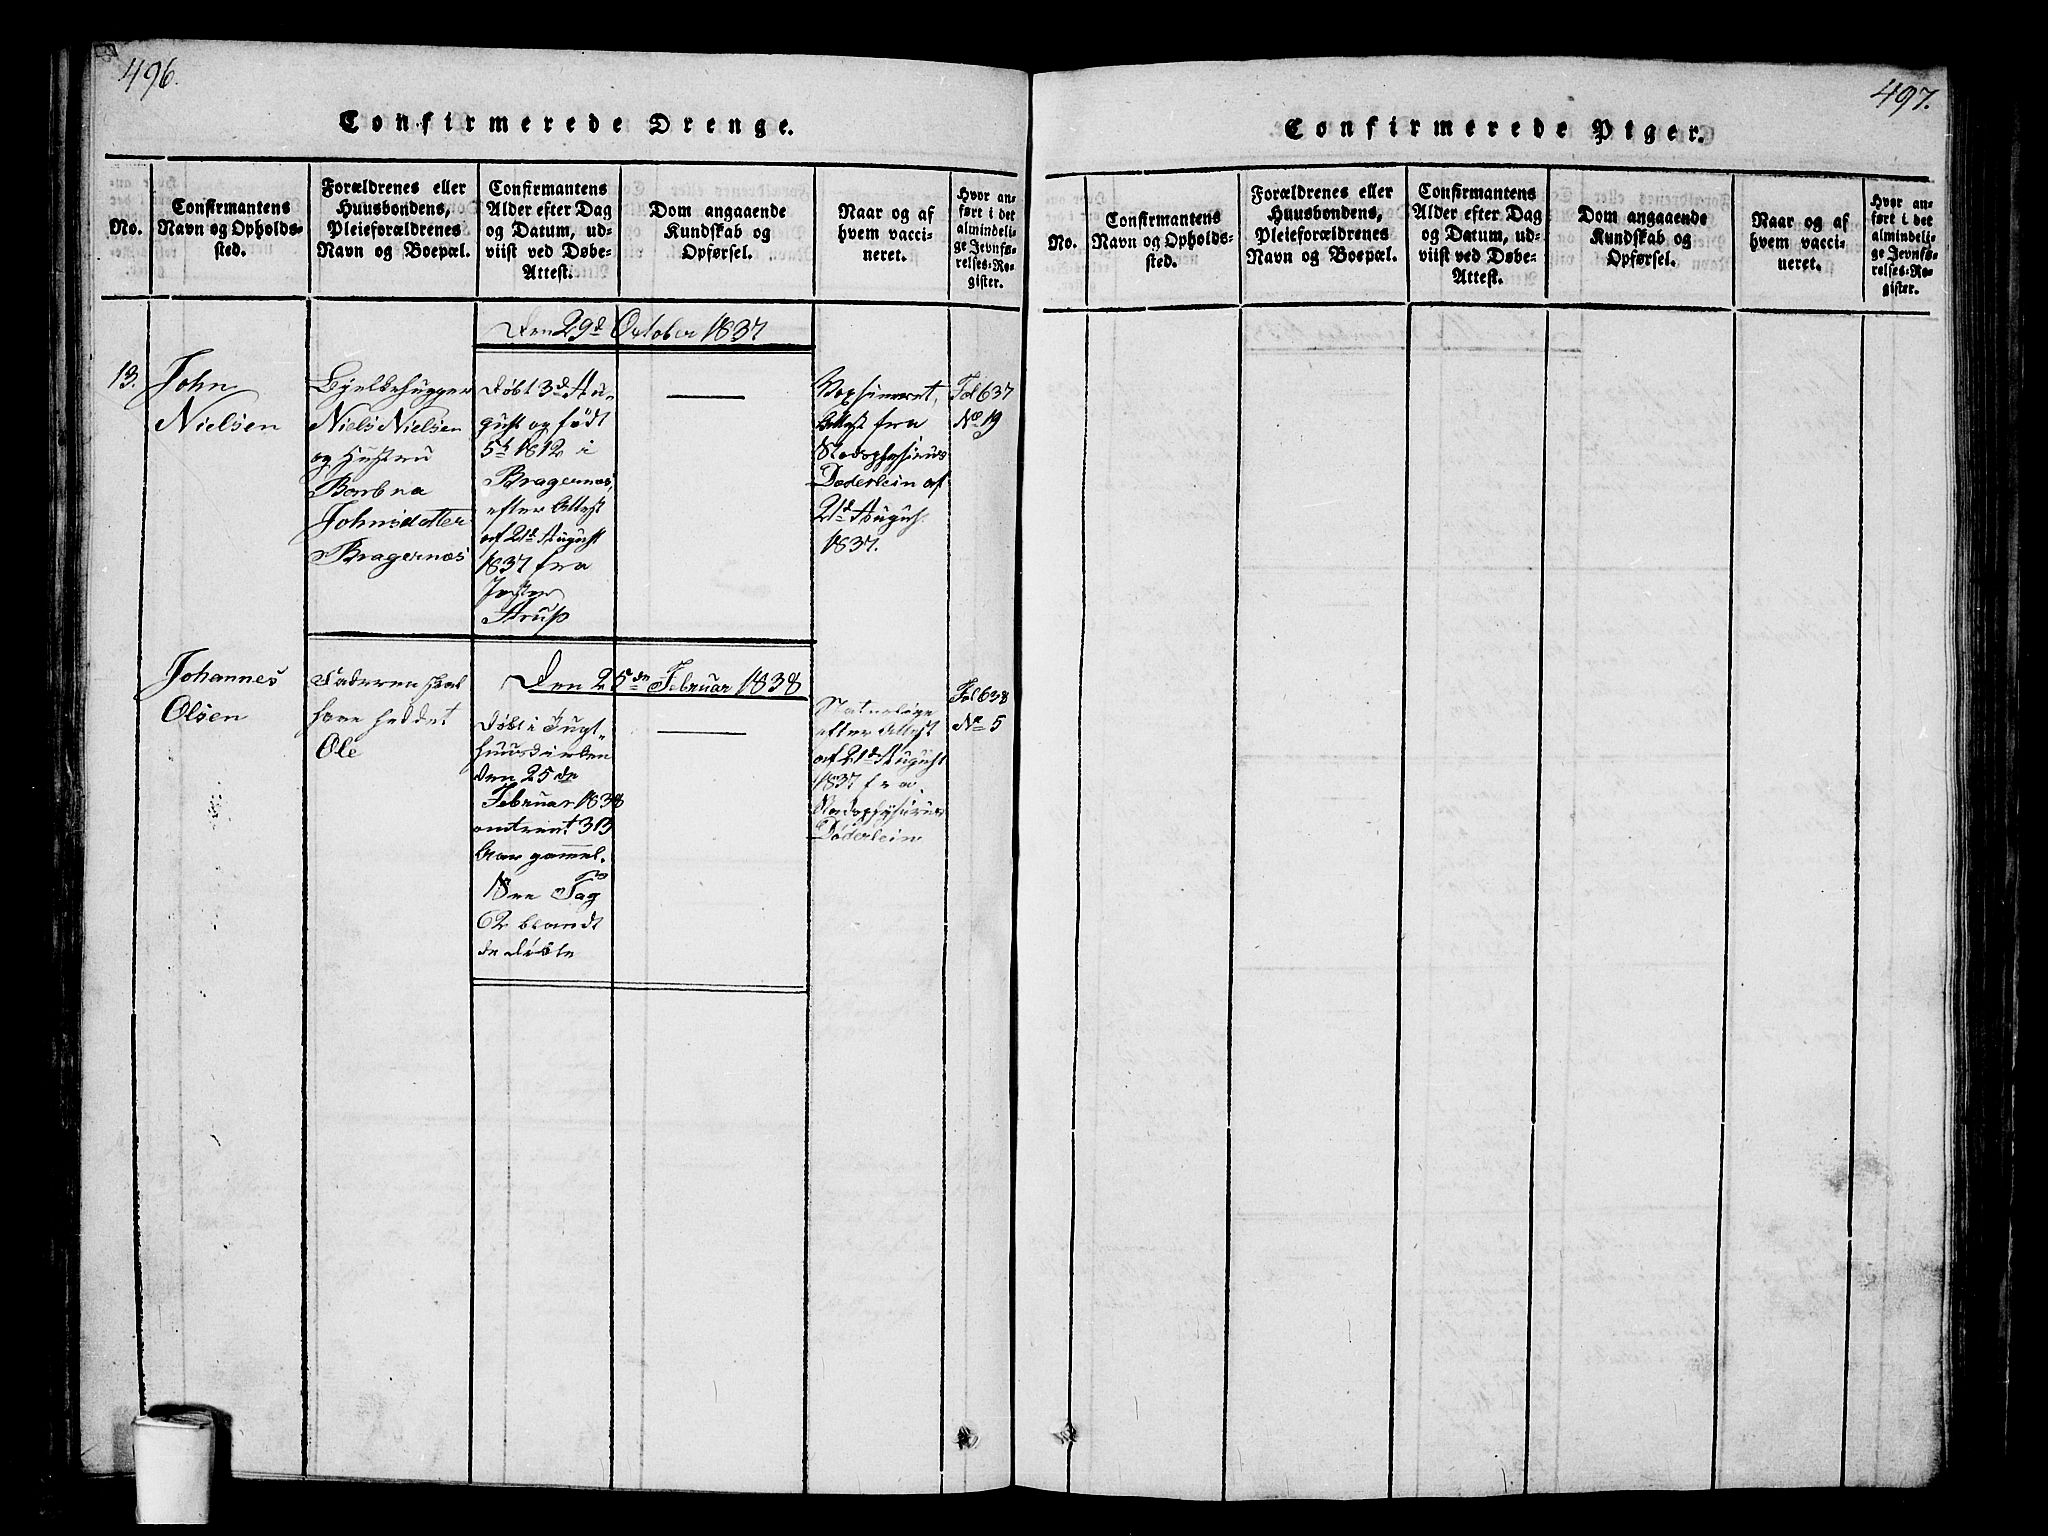 496.
Confirmerede Drenge.
No.
Confirmantens
Navn og Opholds-
sted.
Forældrenes eller
Huusbondens,
Pleieforældrenes
Navn og Boepæl.
Confirmantens
Alder efter Dag
og Datum, ud-
viist ved Døbe-
Attest.
Dom angaaende
Kundskab og
Opførsel.
Naar og af
hvem vacci-
neret.
Hvor an-
ført i det
almindeli-
ge Jevnfø-
relses-Re-
gister.
Den 29d October 1837
13.
John
Nielsen
Bjelkehugger
Niels Nielsen
og Hustru
Johnsdatter
Bragernæs
Døbt 3d Au-
gust og født
5t 1812 i
Bragernæs,
efter Attest
af 21d August
1837 fra
Strup
Attest fra
Stadsphysicus
Døderlein af
21d August
1837.
Fol 637
No 19
Johannes
Olsen
Faderen skal
have heddet
Ole
Den 25de Februar 1838
Døbt i Tugt-
huuskirken
den 25de
Februar 1838
omtrent 33
Aar gammel.
See Pag
62 blandt
de døbte
efter Attest
af 21d August
1837 fra
Stadsphysicus
Døderlein
Fol 638
No 5
497.
Confirmerede Piger.
No.
Confirmantens
Navn og Opholds-
sted.
Forældrenes eller
Huusbondens,
Pleieforældrenes
Navn og Boepæl.
Confirmantens
Alder efter Dag
og Datum, ud-
viist ved Døbe-
Attest.
Dom angaaende
Kundskab og
Opførsel.
Naar og af
hvem vacci-
neret.
Hvor an-
ført i det
almindeli-
ge Jevnfø-
relses-Re-
gister.